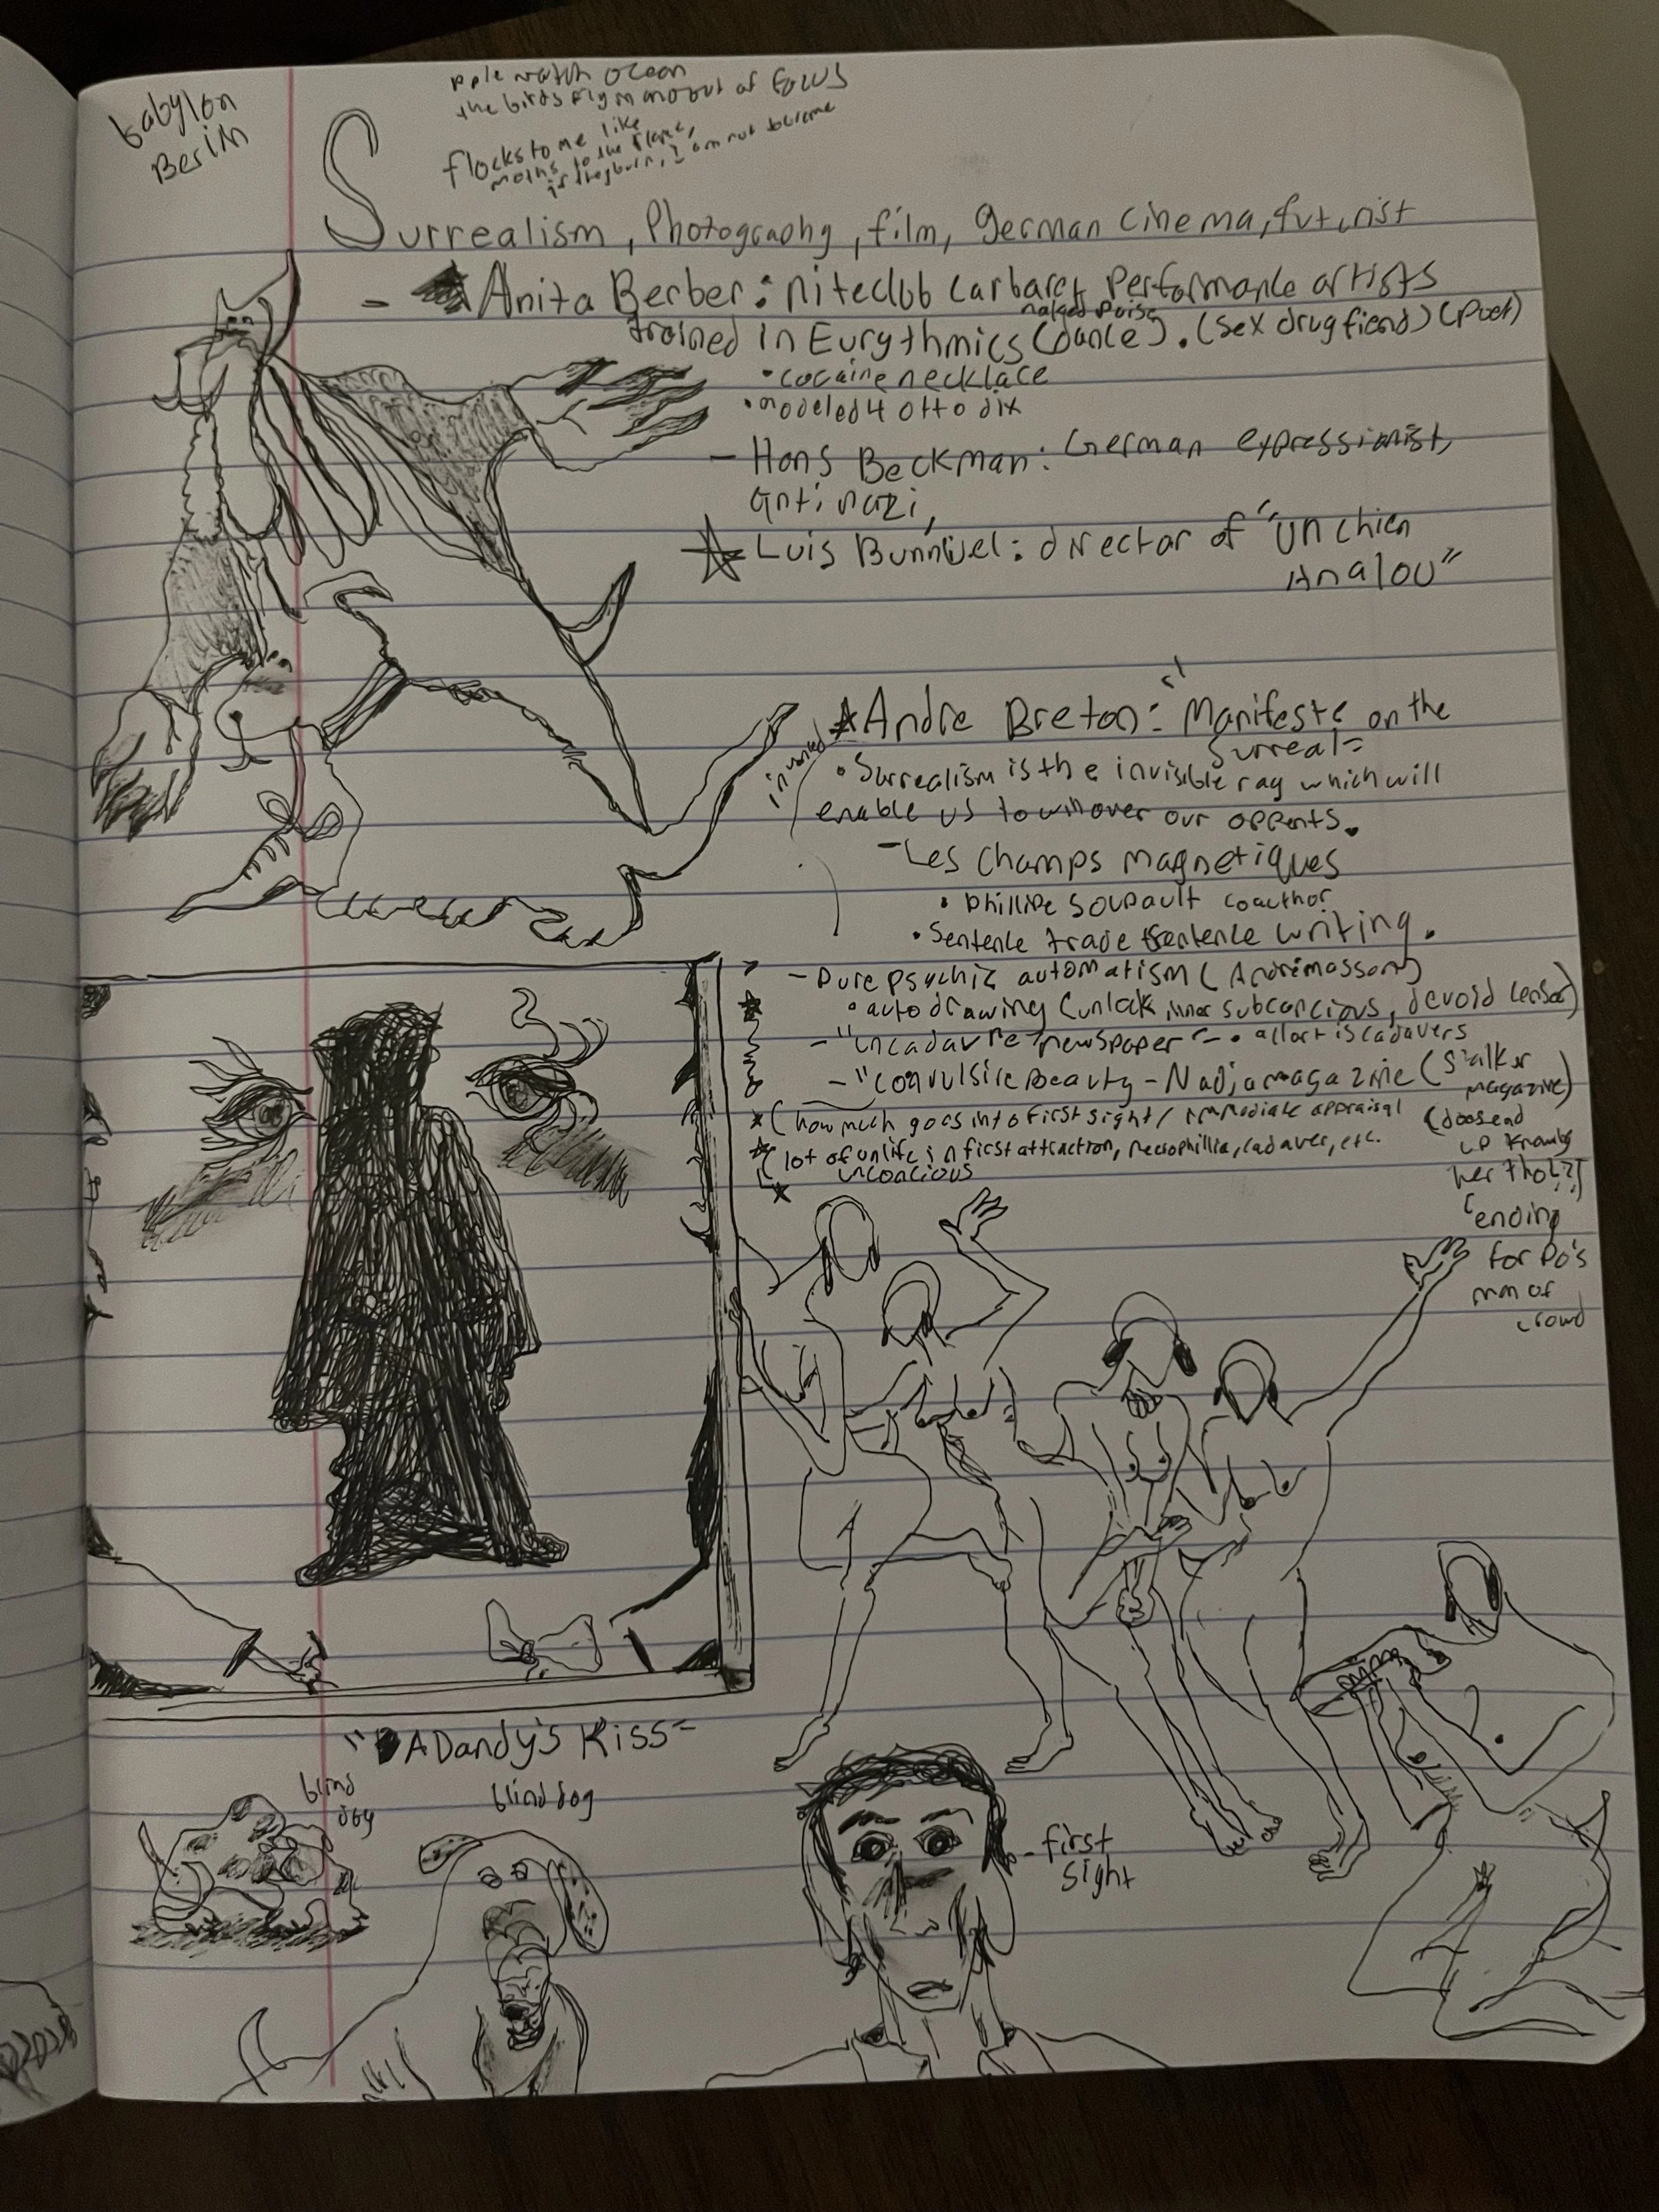 babylon
Berlin
pple watch ocean
the birds fly in and out of focus
flocks to me like
moths to the flame,
if they burn, I am not to blame
Surrealism, Photography, film, German Cinema, futurist
- Anita Berber: niteclub carbaret Performance artists
naked
trained in Eurythmics (dance). (sex drug fiend) (poet)
• cocaine necklace
• modeled 4 otto dix
- Hans Beckman: German expressionist,
anti nazi,
Luis Bunnuel: director of "Un Chien
Analou"
Andre Breton: "Manifeste on the
Surreal"
• Surrealism is the invisible ray which will
enable us to win over our oppents.
- Les Champs magnetiques
• Phillipe Soupault coauthor
• Sentence trade sentence writing.
- Pure psychic automatism (André masson)
• auto drawing (unlock inner subconcious, devoid censor)
- "cadavre newspaper" - • all art is cadavers
- "Convulsive Beauty - Nadja magazine (Stalker
magazine)
(how much goes into first sight / immediate appraisal
(does end
up knowing
her tho!?)
(lot of unlife in first attraction, necrophillia, cadaver, etc.
unconcious
(ending
for Po's
man of
crowd
"DADandy's Kiss"
blind
dog
blind dog
- first
sight